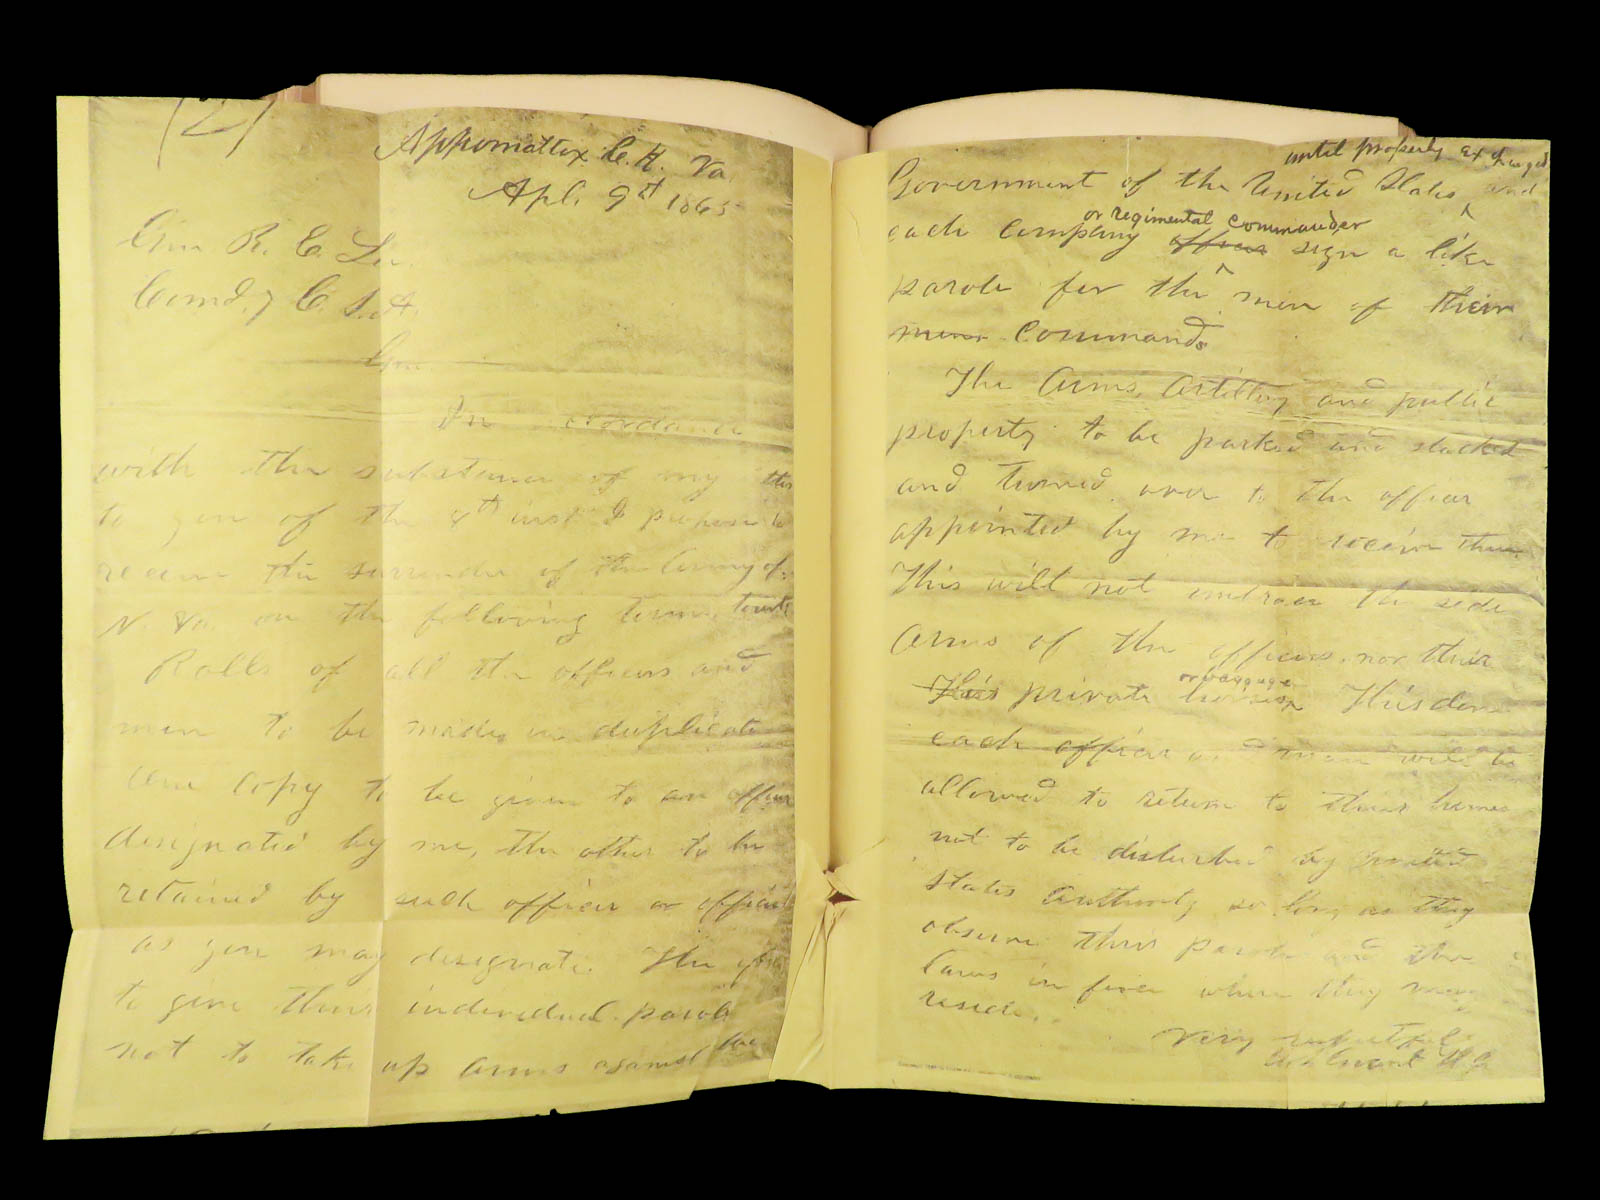 (2)
Appomattox C. H. Va.
Apl. 9th 1865
Gen R. E. Lee
Comd.g C. S. A.
Gen
In accordance
with the substance of my
to you of the 8th inst I propose to
receive the surrender of the Army of
N. Va. on the following terms, towit
Rolls of all the officers and
men to be made in duplicate
One copy to be given to an officer
designated by me, the other to be
retained by such officer or officers
as you may designate. The officers
to give their individual paroles
not to take up arms against the
until properly exchanged
Government of the United States and
or regimental commander
each company officer sign a like
parole for the men of their
commands
The Arms, Artillery and public
property to be parked and stacked
and turned over to the officer
appointed by me to receive them.
This will not embrace the side
Arms of the officers, nor their
or baggage
This private horses This done
each officer and man will be
allowed to return to their homes
not to be disturbed by United
States Authority so long as they
observe their parole and the
laws in force where they may
reside.
Very respectfully
U. S. Grant Lt. Gn